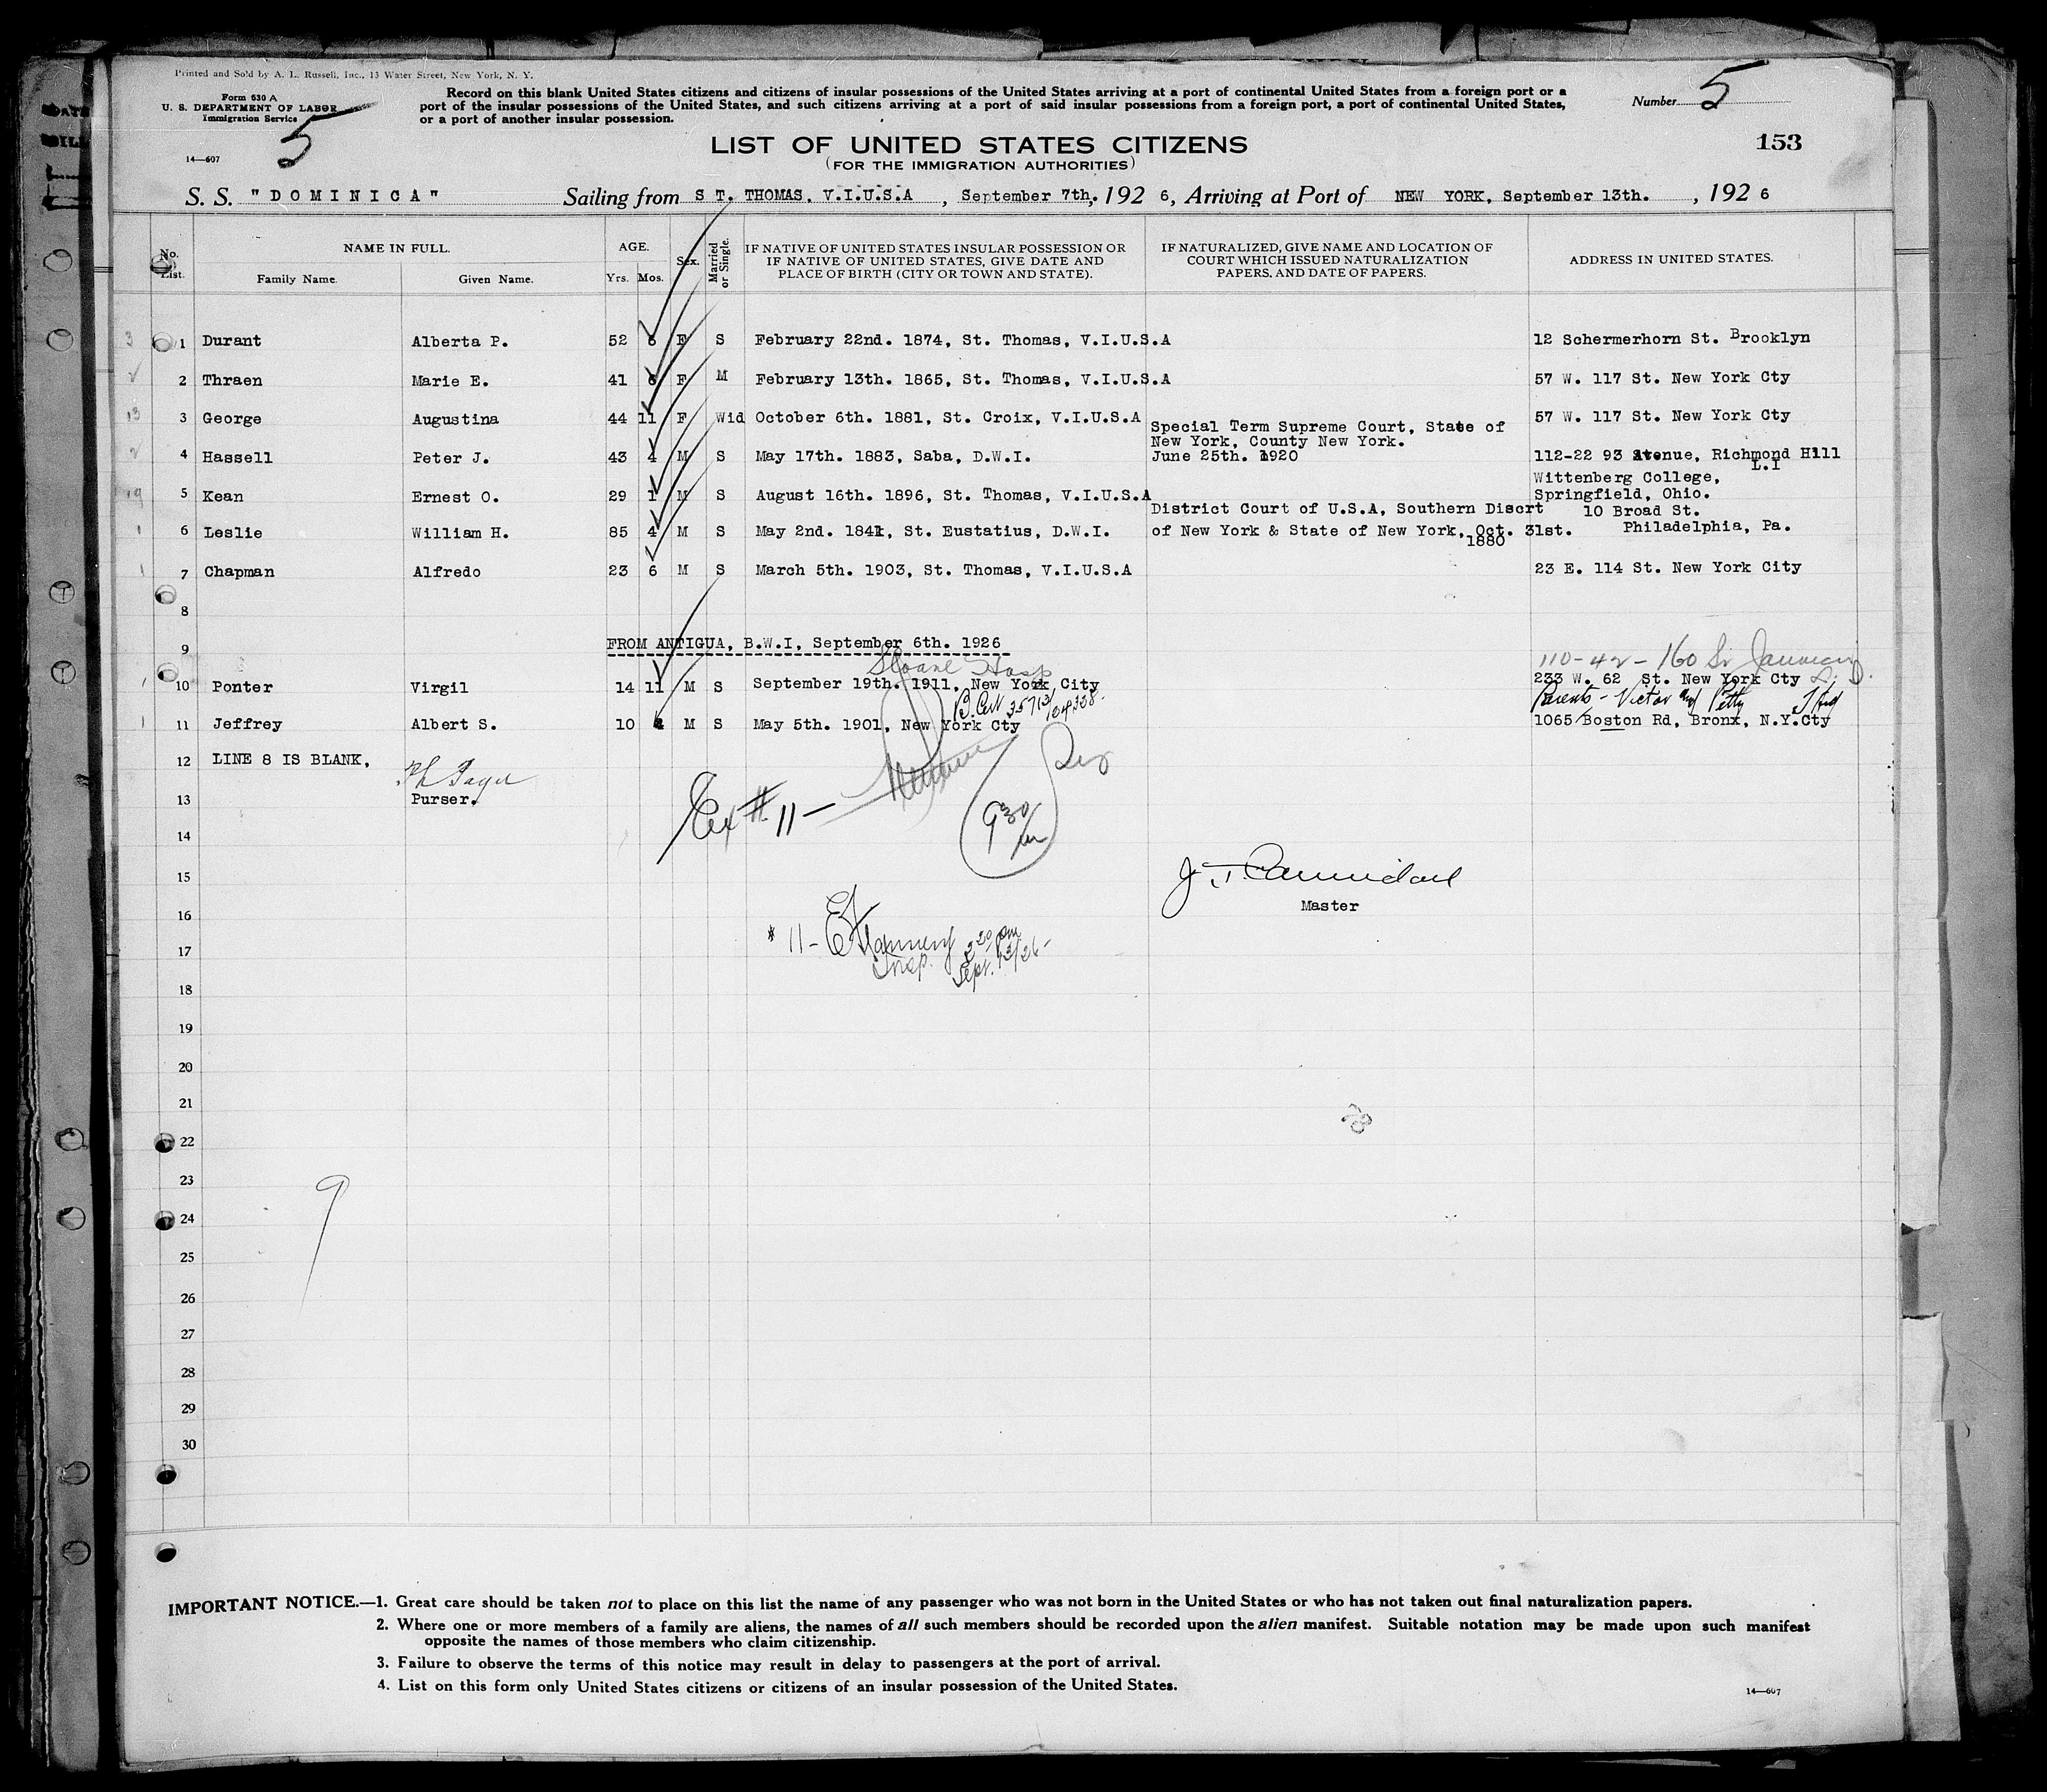 Printed and Sold by A. L. Russell, Inc., 13 Water Street, New York, N. Y.
Form 630 A
U. S. DEPARTMENT OF LABOR
Immigration Service
14—607
5
Record on this blank United States citizens and citizens of insular possessions of the United States arriving at a port of continental United States from a foreign port or a
port of the insular possessions of the United States, and such citizens arriving at a port of said insular possessions from a foreign port, a port of continental United States,
or a port of another insular possession.
Number 5
153
LIST OF UNITED STATES CITIZENS
(FOR THE IMMIGRATION AUTHORITIES)
S. S. "DOMINICA" Sailing from ST. THOMAS. V.I.U.S.A , September 7th, 192 6, Arriving at Port of NEW YORK, September 13th. , 192 6
No. List. NAME IN FULL. Family Name. Given Name. AGE. Yrs. Mos. Sex. Married or Single. IF NATIVE OF UNITED STATES INSULAR POSSESSION OR IF NATIVE OF UNITED STATES, GIVE DATE AND PLACE OF BIRTH (CITY OR TOWN AND STATE). IF NATURALIZED, GIVE NAME AND LOCATION OF COURT WHICH ISSUED NATURALIZATION PAPERS, AND DATE OF PAPERS. ADDRESS IN UNITED STATES.
3 1 Durant Alberta P. 52 6 F S February 22nd. 1874, St. Thomas, V.I.U.S.A 12 Schermerhorn St. Brooklyn
2 Thraen Marie E. 41 6 F M February 13th. 1865, St. Thomas, V.I.U.S.A 57 W. 117 St. New York Cty
13 3 George Augustina 44 11 F Wid October 6th. 1881, St. Croix, V.I.U.S.A 57 W. 117 St. New York Cty
Special Term Supreme Court, State of
New York, County New York.
4 Hassell Peter J. 43 4 M S May 17th. 1883, Saba, D.W.I. June 25th. 1920 112-22 93 Avenue, Richmond Hill
L.I
Wittenberg College,
5 Kean Ernest O. 29 1 M S August 16th. 1896, St. Thomas, V.I.U.S.A Springfield, Ohio.
District Court of U.S.A, Southern Discrt 10 Broad St.
1 6 Leslie William H. 85 4 M S May 2nd. 1841, St. Eustatius, D.W.I. of New York & State of New York, Oct. 31st. Philadelphia, Pa.
1880
1 7 Chapman Alfredo 23 6 M S March 5th. 1903, St. Thomas, V.I.U.S.A 23 E. 114 St. New York City
8
9 FROM ANTIGUA, B.W.I, September 6th. 1926
Sloane Hosp 110-42-160 St Jamaica
1 10 Ponter Virgil 14 11 M S September 19th. 1911, New York City 233 W. 62 St. New York Cty
B. Cert 35713 Parents - Victor and Petty
1 11 Jeffrey Albert S. 10 4 M S May 5th. 1901, New York Cty 1065 Boston Rd, Bronx, N.Y.Cty
12 LINE 8 IS BLANK.
13 Purser.
Ex # 11 —
930
14
15
Master
16
# 11 -
17
Insp. 2 20 pm
Sept. 13/26 -
18
19
20
21
22
23
9
24
25
26
27
28
29
30
IMPORTANT NOTICE.—1. Great care should be taken not to place on this list the name of any passenger who was not born in the United States or who has not taken out final naturalization papers.
2. Where one or more members of a family are aliens, the names of all such members should be recorded upon the alien manifest. Suitable notation may be made upon such manifest
opposite the names of those members who claim citizenship.
3. Failure to observe the terms of this notice may result in delay to passengers at the port of arrival.
4. List on this form only United States citizens or citizens of an insular possession of the United States.
14—607